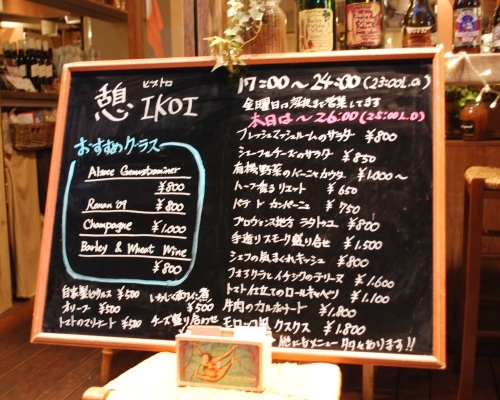 憩 ビストロ
IKOI
おすすめグラス
Alsace Gewustraminer
¥800
Roman '09 ¥800
Champagne ¥1.000
Barley & Wheat Wine
¥800
自家製ピクルス ¥500
オリーブ ¥500
トマトのマリネート ¥500
いわしの赤ワイン煮
¥500
チーズ盛り合わせ
17:00〜24:00(23:00L.O)
金曜日は深夜まで営業してます
本日は〜26:00(25:00L.O)
フレッシュマッシュルームのサラダ ¥800
シェーブルチーズのサラダ ¥850
有機野菜のバーニャカウダ ¥1.000〜
ハーブ香るリエット ¥650
パテ ド カンパーニュ ¥750
プロヴァンス地方 ラタトゥユ ¥800
手造りスモーク盛り合せ ¥1.500
シェフの気まぐれキッシュ ¥800
フォアグラとイチジクのテリーヌ ¥1.600
トマト仕立てのロールキャベツ ¥1.100
牛肉のカルボナード ¥1.800
モロッコ風 クスクス ¥1.800
他にもメニュー多々あります!!